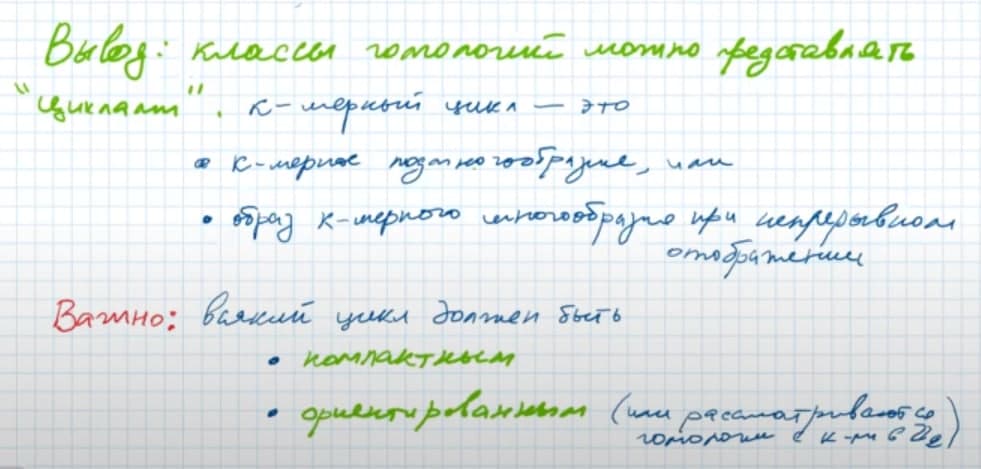 Вывод: классы гомологий можно представлять
"циклами". k-мерный цикл — это
• k-мерное подмногообразие, или
• образ k-мерного многообразия при непрерывном
отображении
Важно: всякий цикл должен быть
• компактным
• ориентированным (или рассматриваются
гомологии с к-ми в ℤ₂)